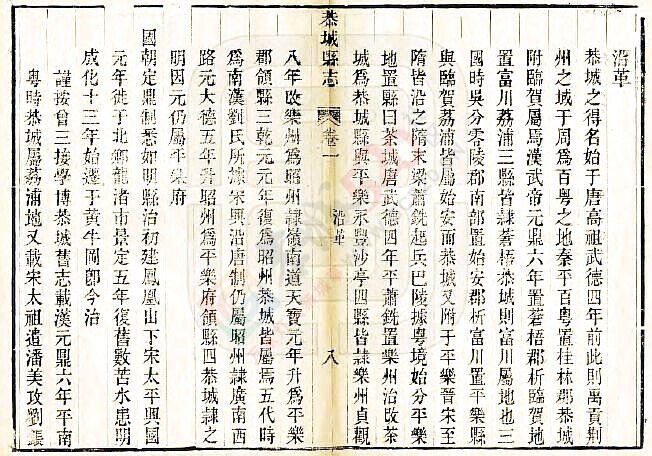 沿革
恭城之得名始于唐高祖武德四年前此則禹貢荆
州之域于周爲百粵之地秦平百粵置桂林郡恭城
附臨賀屬焉漢武帝元鼎六年置蒼梧郡析臨賀地
置富川荔浦三縣皆隸蒼梧恭城則富川屬地也三
國時吳分零陵郡南部置始安郡析富川置平樂縣
與臨賀荔浦皆屬始安而恭城又附于平樂晉宋至
隋皆沿之隋末梁蕭銑起兵巴陵據粵境始分平樂
地置縣曰茶城唐武德四年平蕭銑置樂州治改茶
城爲恭城縣與平樂永豐沙亭四縣皆隸樂州貞觀
恭城縣志
卷一
沿革
八
八年改樂州爲昭州隸嶺南道天寶元年升爲平樂
郡領縣三乾元元年復爲昭州恭城皆屬焉五代時
爲南漢劉氏所據宋興沿唐制仍屬昭州隸廣南西
路元大德五年升昭州爲平樂府領縣四恭城隸之
明因元仍屬平樂府
國朝定鼎制悉如明縣治初建鳳凰山下宋太平興國
元年徙于北鄉龍渚南景定五年復舊數苦水患明
成化十三年始遷于黃牛岡卽今治
謹按曾三接學博恭城舊志載漢元鼎六年平南
粵時恭城屬荔浦地又載宋太祖遣潘美攻劉